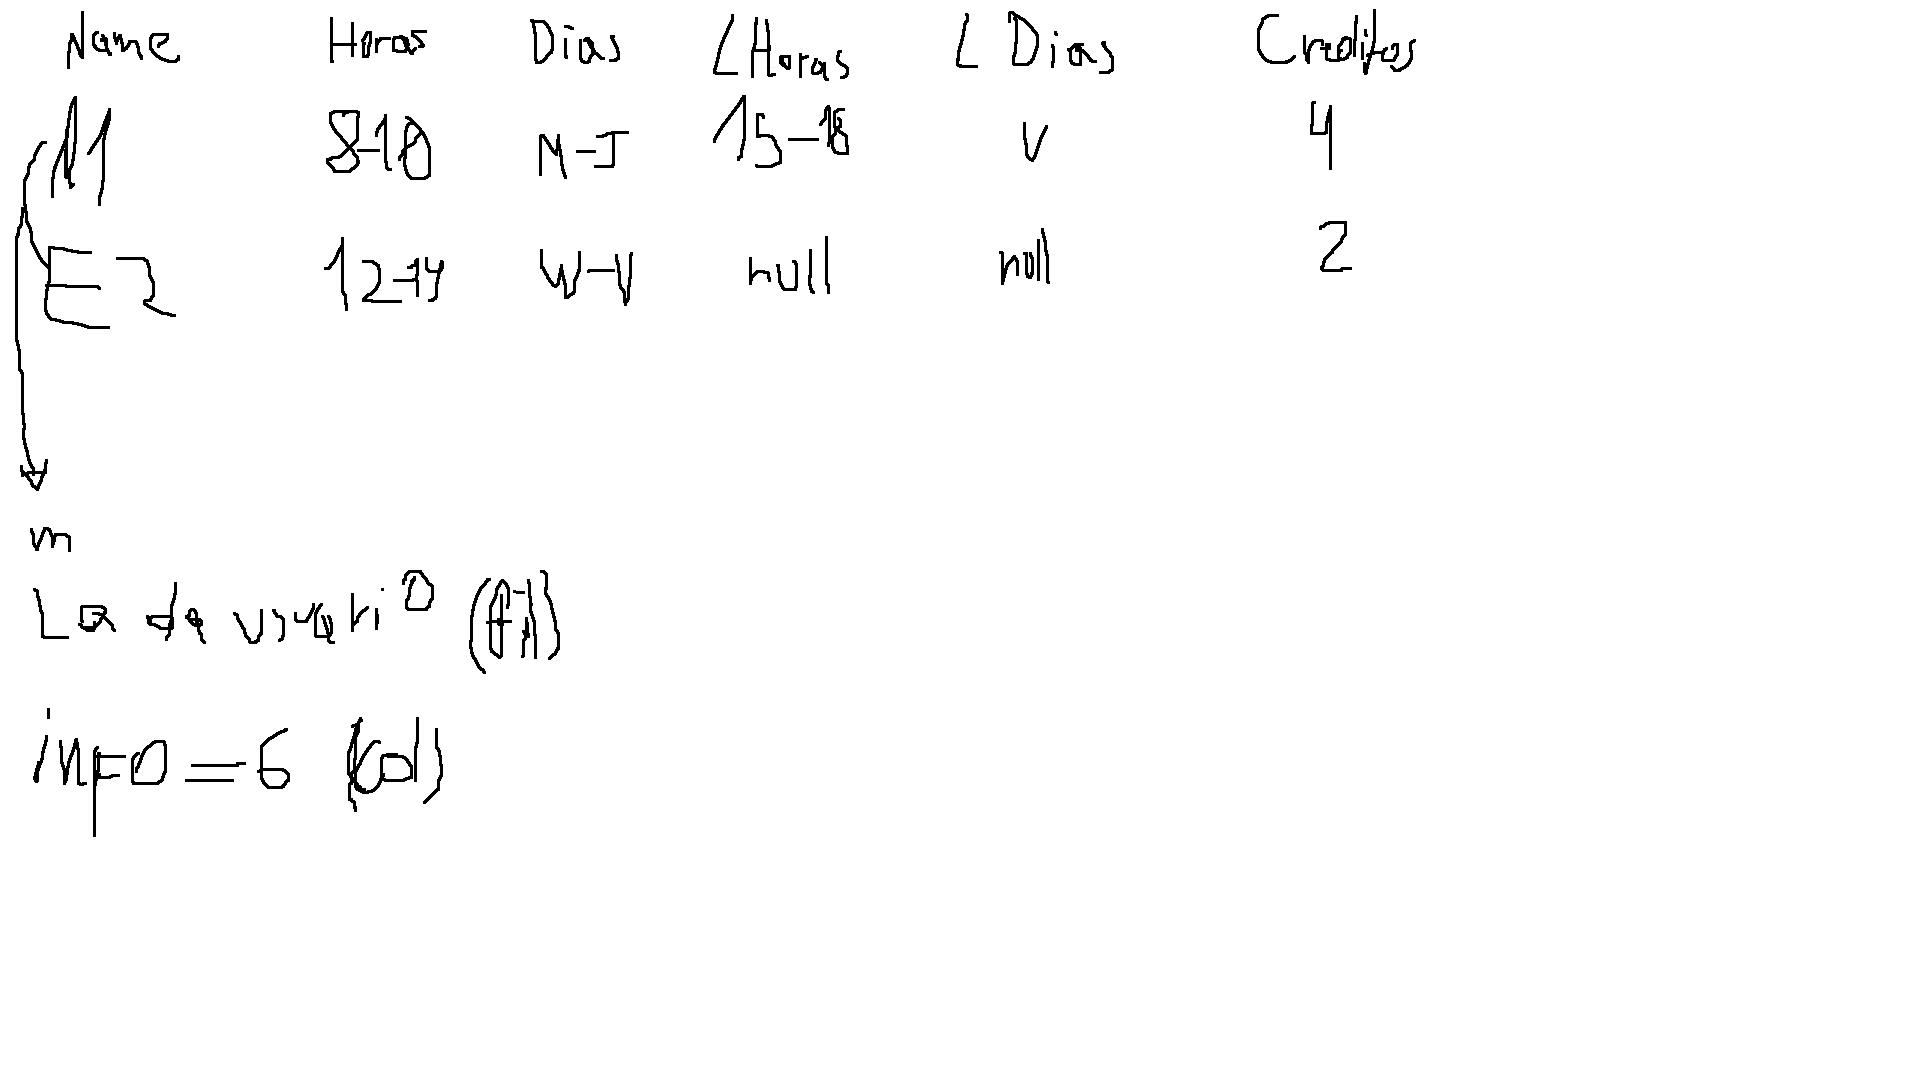 Name Horas Dias LHoras L Dias Creditos
M1 8-10 M-J 15-18 V 4
E2 12-14 W-V null null 2
m
La da usuario
info = 6 (col)